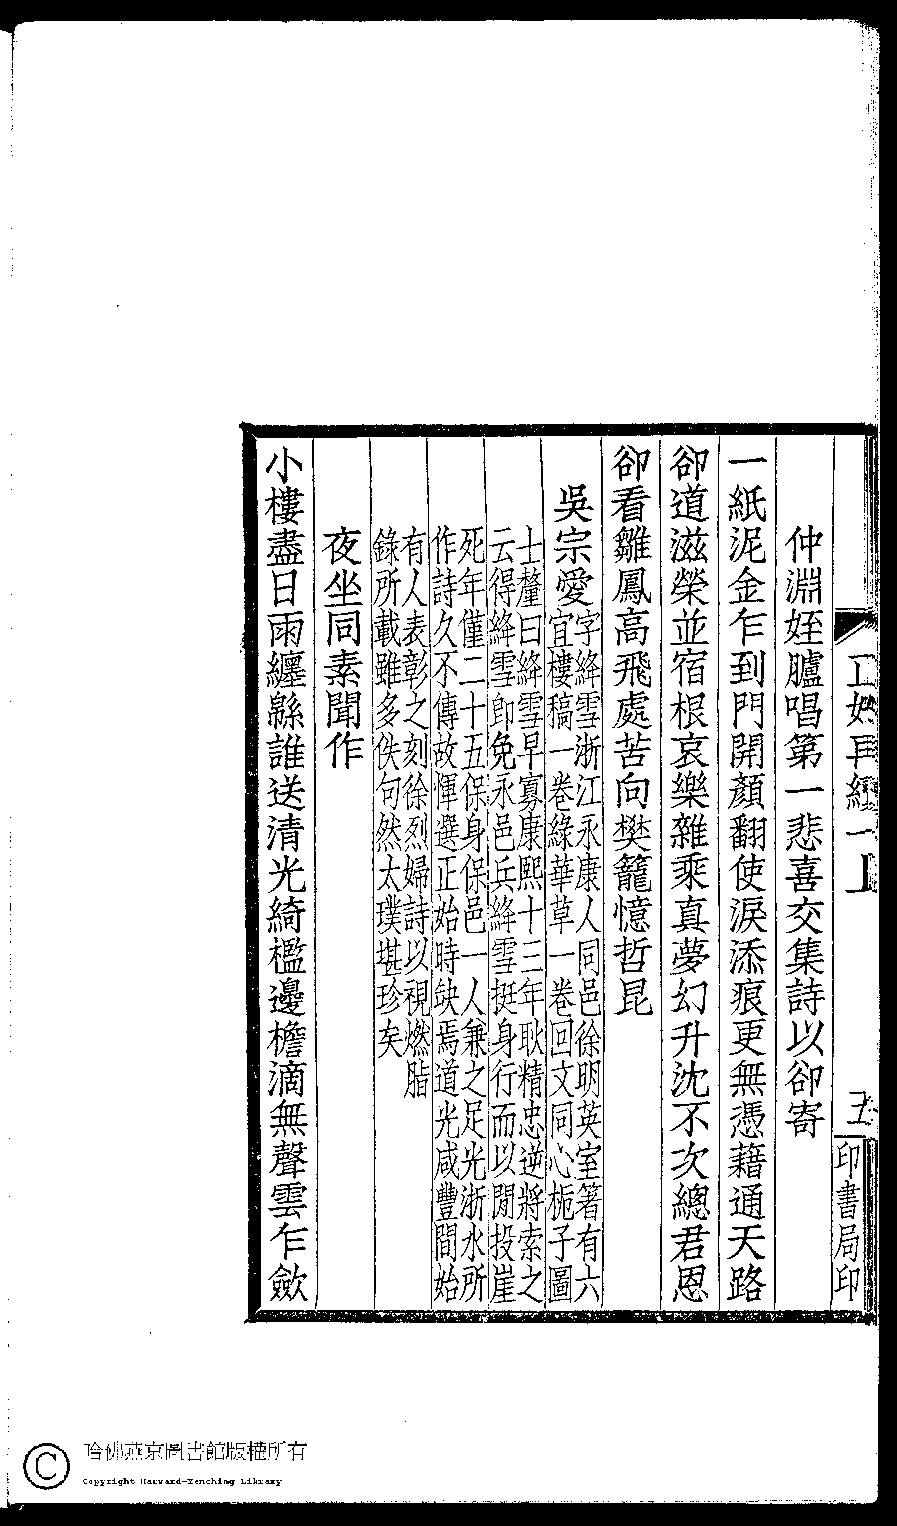 仲淵姪臚唱第一悲喜交集詩以卻寄
一紙泥金乍到門開顏翻使淚添痕更無憑藉通天路
卻道滋榮並宿根哀樂雜乘真夢幻升沈不次總君恩
卻看雛鳳高飛處苦向樊籠憶哲昆
吳宗愛
字絳雪浙江永康人同邑徐明英室著有六
宜樓稿一卷綠華草一卷回文同心栀子圖
士釐曰絳雪早寡康熙十三年耿精忠逆將索之
云得絳雪即免永邑兵絳雪挺身行而以閒投崖
死年僅二十五保身保邑一人兼之足光浙水所
作詩久不傳故惲選正始時缺焉道光咸豐間始
有人表彰之刻徐烈婦詩以視燃脂
錄所載雖多佚句然太璞堪珍矣
夜坐同素聞作
小樓盡日雨纏緜誰送清光綺檻邊檐滴無聲雲乍斂
再經一上
五
印書局印
哈佛燕京圖書館版權所有
Copyright Harvard-Yenching Library